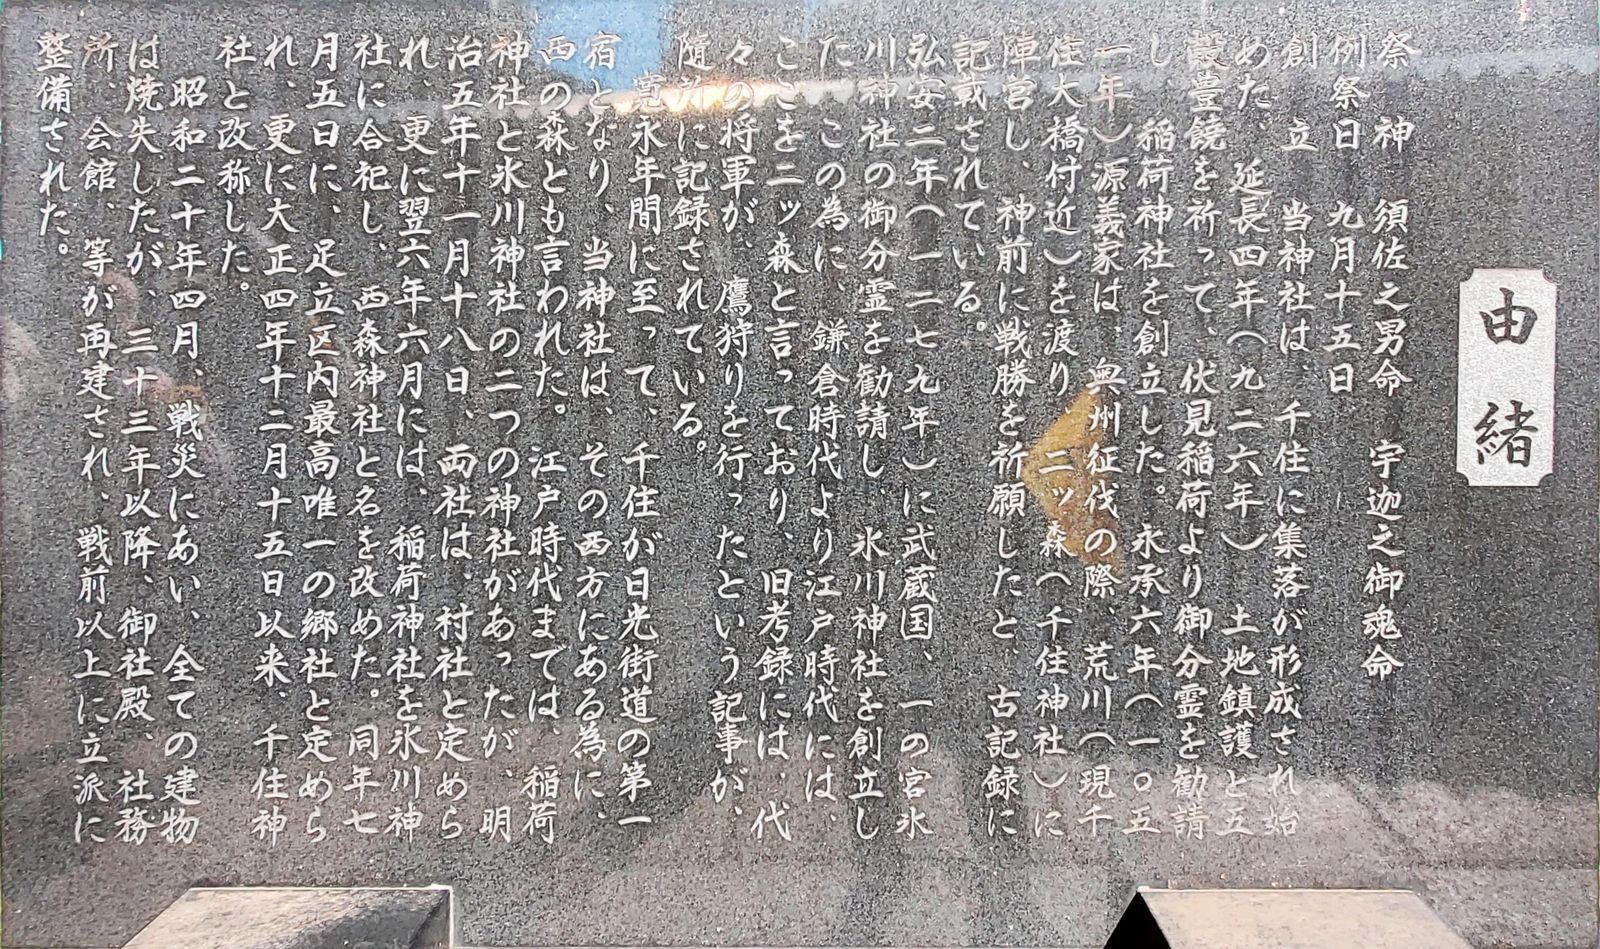 由緒
祭神 須佐之男命 宇迦之御魂命
例祭日 九月十五日
創立 当神社は、千住に集落が形成され始
めた、延長四年(九二六年)土地鎮護と五
穀豊饒を祈って、伏見稲荷より御分霊を勧請
し、稲荷神社を創立した。永承六年(一〇五
一年)源義家は、奥州征伐の際、荒川(現千
住大橋付近)を渡り、二ッ森(千住神社)に
陣営し、神前に戦勝を祈願したと、古記録に
記載されている。
弘安二年(一二七九年)に武蔵国、一の宮氷
川神社の御分霊を勧請し、氷川神社を創立し
た。この為に、鎌倉時代より江戸時代には、
ここを二ッ森と言っており、旧考録には、代
々の将軍が、鷹狩りを行ったという記事が、
随所に記録されている。
寛永年間に至って、千住が日光街道の第一
宿となり、当神社は、その西方にある為に、
西の森とも言われた。江戸時代までは、稲荷
神社と氷川神社の二つの神社があったが、明
治五年十一月十八日、両社は、村社と定めら
れ、更に翌六年六月には、稲荷神社を氷川神
社に合祀し、西森神社と名を改めた。同年七
月五日に、足立区内最高唯一の郷社と定めら
れ、更に大正四年十二月十五日以来、千住神
社と改称した。
昭和二十年四月、戦災にあい、全ての建物
は焼失したが、三十三年以降、御社殿、社務
所、会館、等が再建され、戦前以上に立派に
整備された。